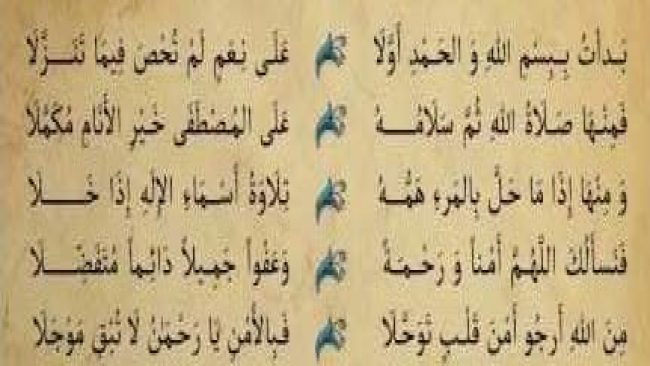 بَدَأتُ بِـبِـسْمِ اللهِ وَ الحَمْدِ أَوَّلَا عَلَى نِعَمٍ لَمْ تُحْصَ فِيمَا تَنَـزَّلَا
فَمِنْهَا صَلَاةُ اللهِ ثُمَّ سَلَامُـــهُ عَلَى المُصْطَفَى خَيْرِ الأَنَامِ مُكَمَّلَا
وَ مِنْهَا إِذَا مَا حَلَّ بِالمَرءِ هَمُّـهُ تِلَاوَةُ أَسْـمَاءِ الإِلَهِ إِذَا خَـــلَا
فَنَسأَلُكَ اللَّهُمَّ أَمْناً وَ رَحْـمَةً وَعَفْواً جَمِيلاً دَائِـماً مُتَفَضِّـــلَا
مِنَ اللهِ أَرجُو أَمنَ قَلْبٍ تَوَحَّلَا فَبِالأَمْنِ يَا رَحْمَنُ لَا تُبْقِ مَوْجَلَا